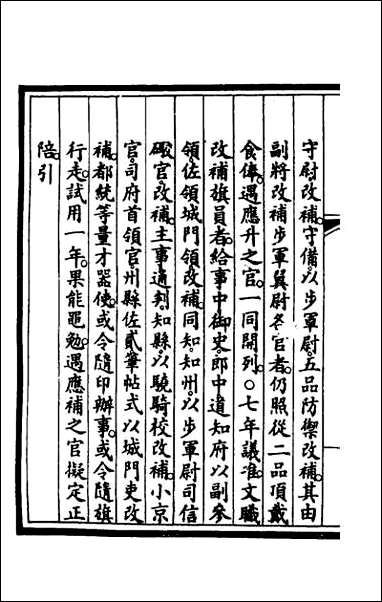 守尉改補守備以步軍尉五品防禦改補其由
副將改補步軍翼尉各官者仍照從二品頂戴
食俸遇應升之官一同開列○七年議准文職
改補旗員者給事中御史郎中道知府以副參
領佐領城門領改補同知知州以步軍尉司信
礮官改補主事通判知縣以驍騎校改補小京
官司府首領官州縣佐貳筆帖式以城門吏改
補都統等量才器使或令隨印辦事或令隨旗
行走試用一年果能黽勉遇應補之官擬定正
陪引